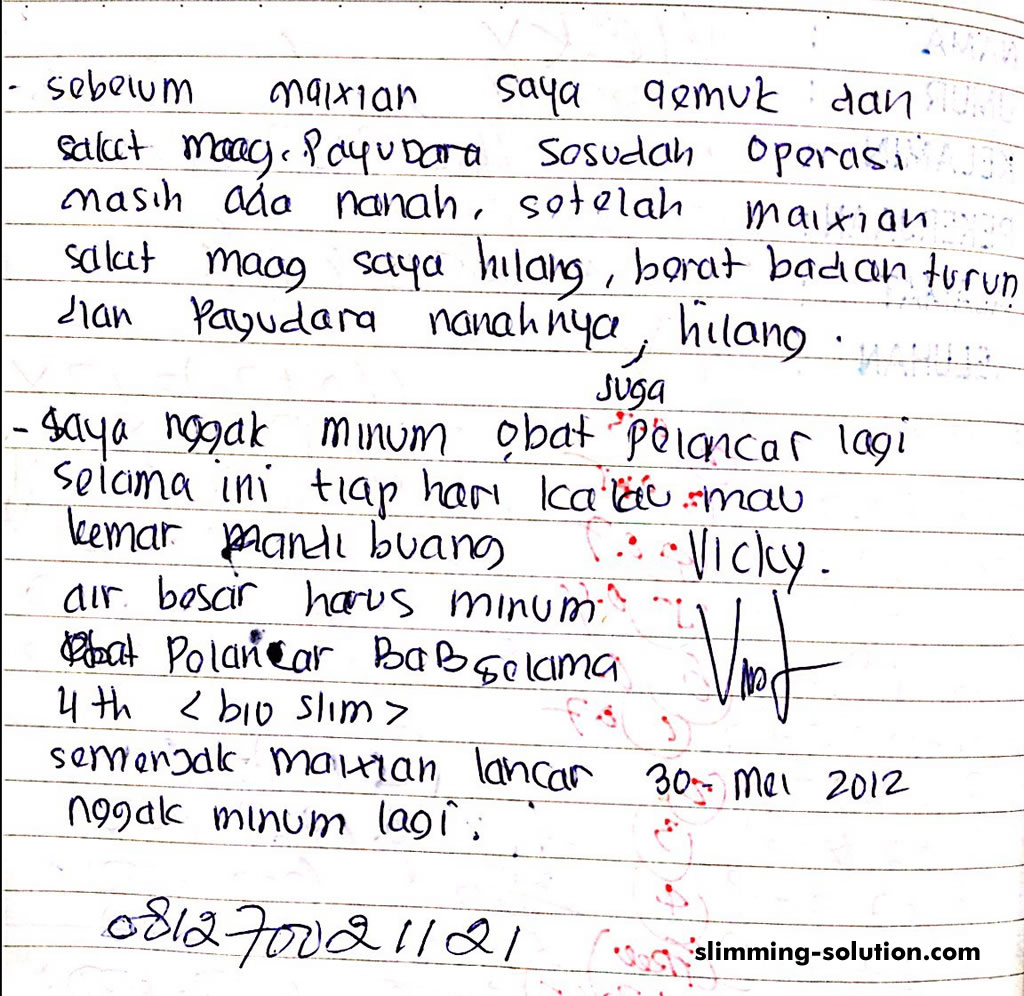 - sebelum maixian saya gemuk dan
sakit maag. Payudara sesudah operasi
masih ada nanah. setelah maixian
sakit maag saya hilang, berat badan turun
dan Payudara nanahnya, hilang.
juga
- saya nggak minum obat pelancar lagi
selama ini tiap hari kalau mau
kemar mandi buang
Vicky.
air besar harus minum
obat Pelancar BaB selama
4 th < bio slim >
semenjak maixian lancar
30 - Mei 2012
nggak minum lagi.
081270021121
slimming-solution.com